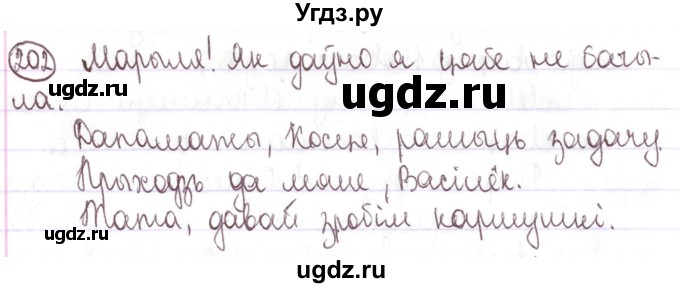 Угдз.ру
202 Марыля! Як даўно я цябе не бачы-
ла.
ugdz.ru ugdz.ru
Дапамажы, Косце, рашыць задачу.
ugdz.ru ugdz.ru
Прыходзь да мяне, Васілёк.
ugdz.ru
Тата, давай зробім кармушкі.
ugdz.ru ugdz.ru
ugdz.ru